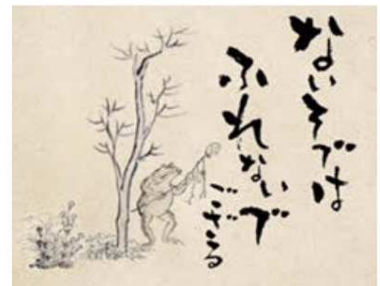 ないそでは
ふれないで
ござる